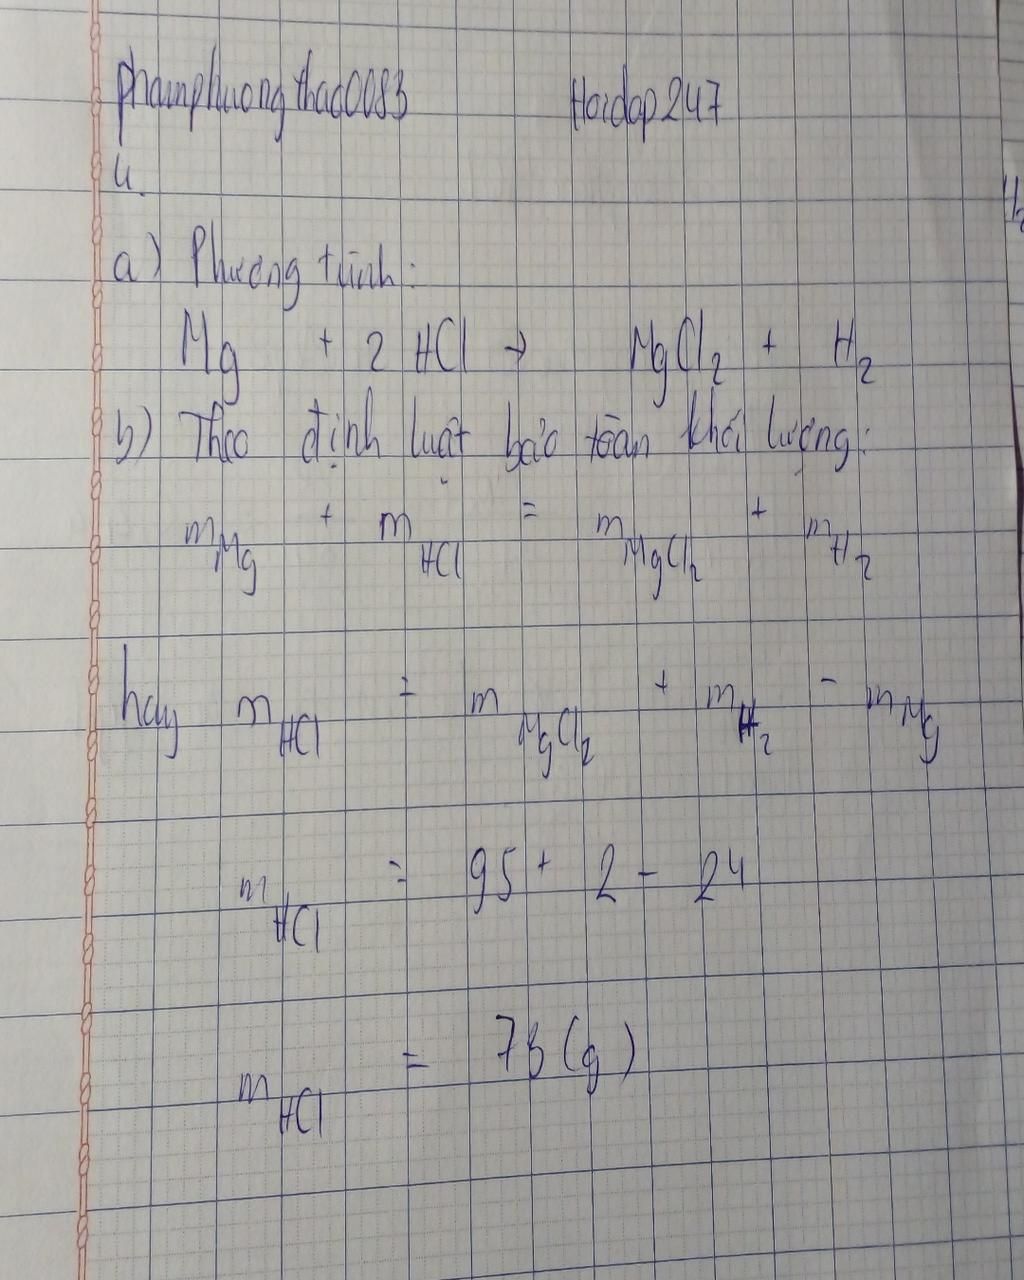 phamphuongthao0083 Hoidap247
4.
a) Phương trình:
Mg + 2 HCl → MgCl2 + H2
b) Theo định luật bảo toàn khối lượng:
mMg + mHCl = mMgCl2 + mH2
hay mHCl = mMgCl2 + mH2 - mMg
mHCl = 95 + 2 - 24
mHCl = 73 (g)